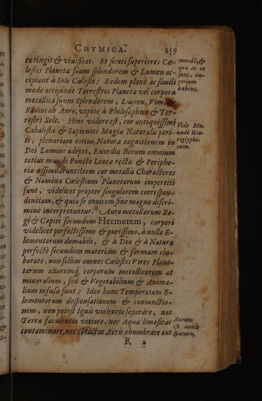 CHYMICA. 259
extingit & vivificat. Et sicuti superiores Cœ-
lestes Planetæ suum splendorem & Lumen ac-
cipiunt à Sole Cœlesti: Eodem planè ac simili
modo accipiunt Terrestres Planetæ vel corpora
metallica suum Splendorem, Lumen, Vim,
ab Auro, utpote à Philosophico & Ter-
restri Sole. Hinc videre est, cur antiquissimi
Cabalistæ & Sapientes Magiæ Naturalis peri-
ti, plenariam totius Naturæ cognitionem in
Dei Lumine adepti, Exordia Rerum omnium
totius mundi Puncto Lineæ rectæ & Periphe-
riæ assimilarunt: Item cur metallis Characteres
& Nomina Cœlestium Planetarum impertiti
sunt, videlicet propter singularem correspon-
denitam, & quis se invicem sine magno discri-
mine interpretantur. Auro metallorum Re-
gi & Capiti secundum Hermetem, corpori
videlicet perfectissimo & purissimo, à nullo E-
lementorum domabili, & à Deo & à Natura
perfectè secundum materiam & formam ela-
borato, non solùm omnes Cœlestes Vires Plane-
tarum aliorumq; corporum metallicorum ac
mineralium, sed & Vegetabilium & Anima-
lium infusa sunt: Ideo hanc Temperatam E-
lementorum desponsationem & conjunctio-
nem, non potest Ignis vivimeto separare, nec
Terra faculentia vitiare, nec Aqua limositate
contaminare, nec contactus Aëris obumbrare aut
R 2
mundi, &
qua ex eo
sunt, im-
perium
habens.
Vide Mo-
nadē Hie-
roglyphi-
cam.
Aurum
est omnis